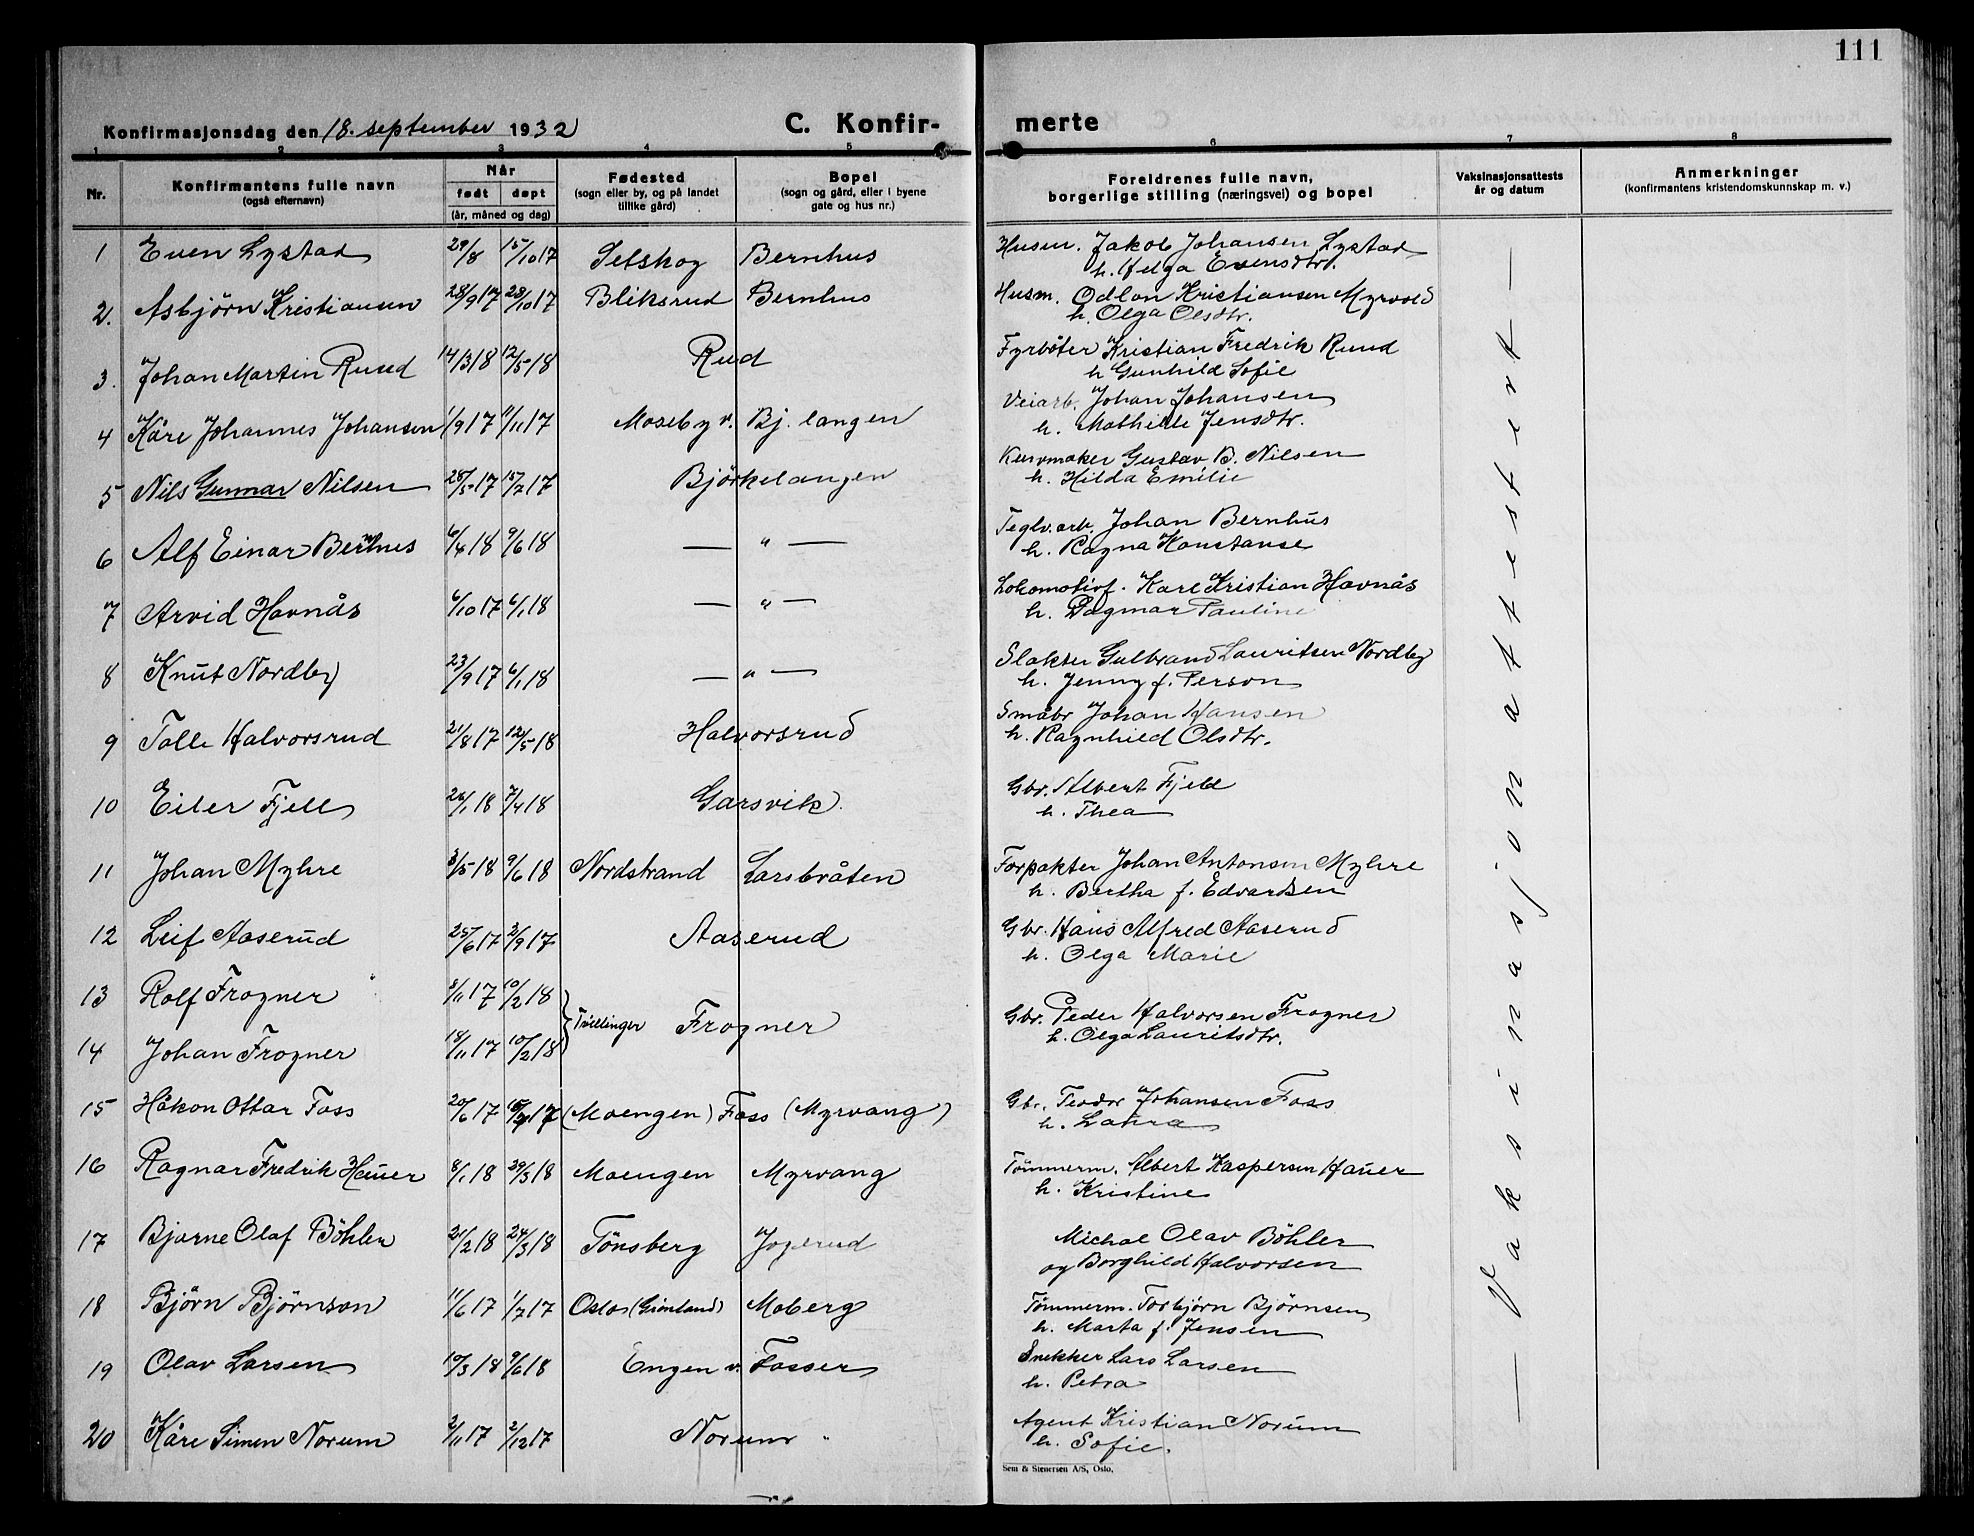 111
Konfirmasjonsdag den 18. september 1932
C. Konfir- merte
1 2 3 4 5 6 7 8
Nr. Konfirmantens fulle navn (også efternavn) Når født døpt (år, måned og dag) Fødested (sogn eller by, og på landet tillike gård) Bopel (sogn og gård, eller i byene gate og hus nr.) Foreldrenes fulle navn, borgerlige stilling (næringsvei) og bopel Vaksinasjonsattests år og datum Anmerkninger (konfirmantens kristendomskunnskap m. v.)
1 Even Lystad 29/8 15/10 17 Setskog Bernhus Husm. Jakob Johansen Lystad
h. Helga Evensdtr.
2. Asbjörn Kristiansen 28/9 17 28/10 17 Bliksrud Bernhus Husm. Odlon Kristiansen Myrvold
h. Olga Olsdtr.
3. Johan Martin Ruud 14/3 18 12/5 18 Rud Fyrböter Kristian Fredrik Ruud
h Gunhild Sofie
4 Kåre Johannes Johansen 1/9 17 11/11 17 Moseby v. Bj. langen Veiarb. Johan Johansen
h. Mathilde Jensdtr.
5 Nils Gunnar Nilsen 28/5 17 15/7 17 Björkelangen Kurvmaker Gustav B. Nilsen
h. Hilda Emilie
6 Alf Einar Bernhus 6/4 18 9/6 18 — " — Teglv.arb. Johan Bernhus
h. Ragna Konstanse
7 Arvid Havnås 6/10 17 6/1 18 — " — Lokomotivf. Karl Kristian Havnås
h. Dagmar Pauline
8 Knut Nordby 23/9 17 6/1 18 — " — Slakter Gulbrand Lauritsen Nordby
h. Jenny f. Person
9 Tolle Halvorsrud 21/8 17 12/5 18 Halvorsrud Småbr Johan Hansen
h. Ragnhild Olsdtr.
10 Eiler Fjell 26/1 18 7/4 18 Garsvik. Gbr. Albert Fjeld
h. Thea
11 Johan Myhre 3/5 18 9/6 18 Nordstrand Larsbråten Forpakter Johan Antonsen Myhre
h. Bertha f. Edvardsen
12 Leif Aaserud 25/6 17 2/9 17 Aaserud Gbr. Hans Alfred Aaserud
h. Olga Marie
13 Rolf Frogner /11 17 10/2 18
Tvillinger Frogner Gbr. Peder Halvorsen Frogner
h. Olga Lauritsdtr.
14 Johan Frogner 18/11 17 10/2 18
15 Håkon Ottar Foss 20/6 17 17 (Moengen) Foss (Myrvang) Gbr. Teodor Johansen Foss
h. Laura
16 Ragnar Fredrik Hauer 8/1 18 29/3 18 Moengen Myrvang Tömmerm. Albert Kaspersen Hauer
h. Kristine
17 Bjarne Olaf Böhler 21/2 18 24/3 18 Tönsberg Jogerud Michal Olav Böhler
og Borghild Halvorsen
18 Björn Björnson 11/6 17 1/7 17 Oslo (Grönland) Moberg Tömmerm. Torbjörn Björnsen
h. Marta f. Jensen
19 Olav Larsen 10/3 18 9/6 18 Engen v. Fosser Snekker Lars Larsen
h. Petra
20 Kåre Simen Norum 2/11 17 2/12 17 Norum Agent Kristian Norum
h. Sofie.
— Vaksinasjon attestert —
Sem & Stenersen A/S, Oslo.